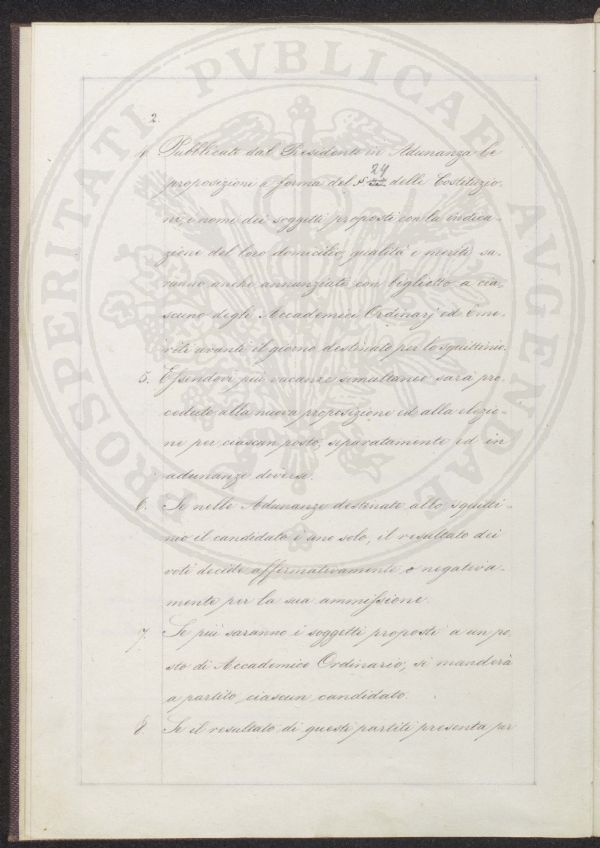 PROSPERITATI PVBLICAE AVGENDAE
2.
4. Pubblicate dal Presidente in Adunanza le
proposizioni a forma del § 24 delle Costituzio-
ni, i nomi dei soggetti proposti con la indica-
zione del loro domicilio, qualità e meriti sa-
ranno anche annunziati con biglietto a cia-
scuno degli Accademici Ordinarj ed Eme-
riti avanti il giorno destinato per lo squittinio.
5. Essendovi più vacanze simultanee sarà pro-
ceduto alla nuova proposizione ed alla elezio-
ne per ciascun posto, separatamente ed in
adunanze diverse.
6. Se nelle Adunanze destinate allo squitti-
nio il candidato è uno solo, il resultato dei
voti decide affermativamente o negativa-
mente per la sua ammissione.
7. Se più saranno i soggetti proposti a un po-
sto di Accademico Ordinario, si manderà
a partito ciascun candidato.
8 Se il resultato di questi partiti presenta per